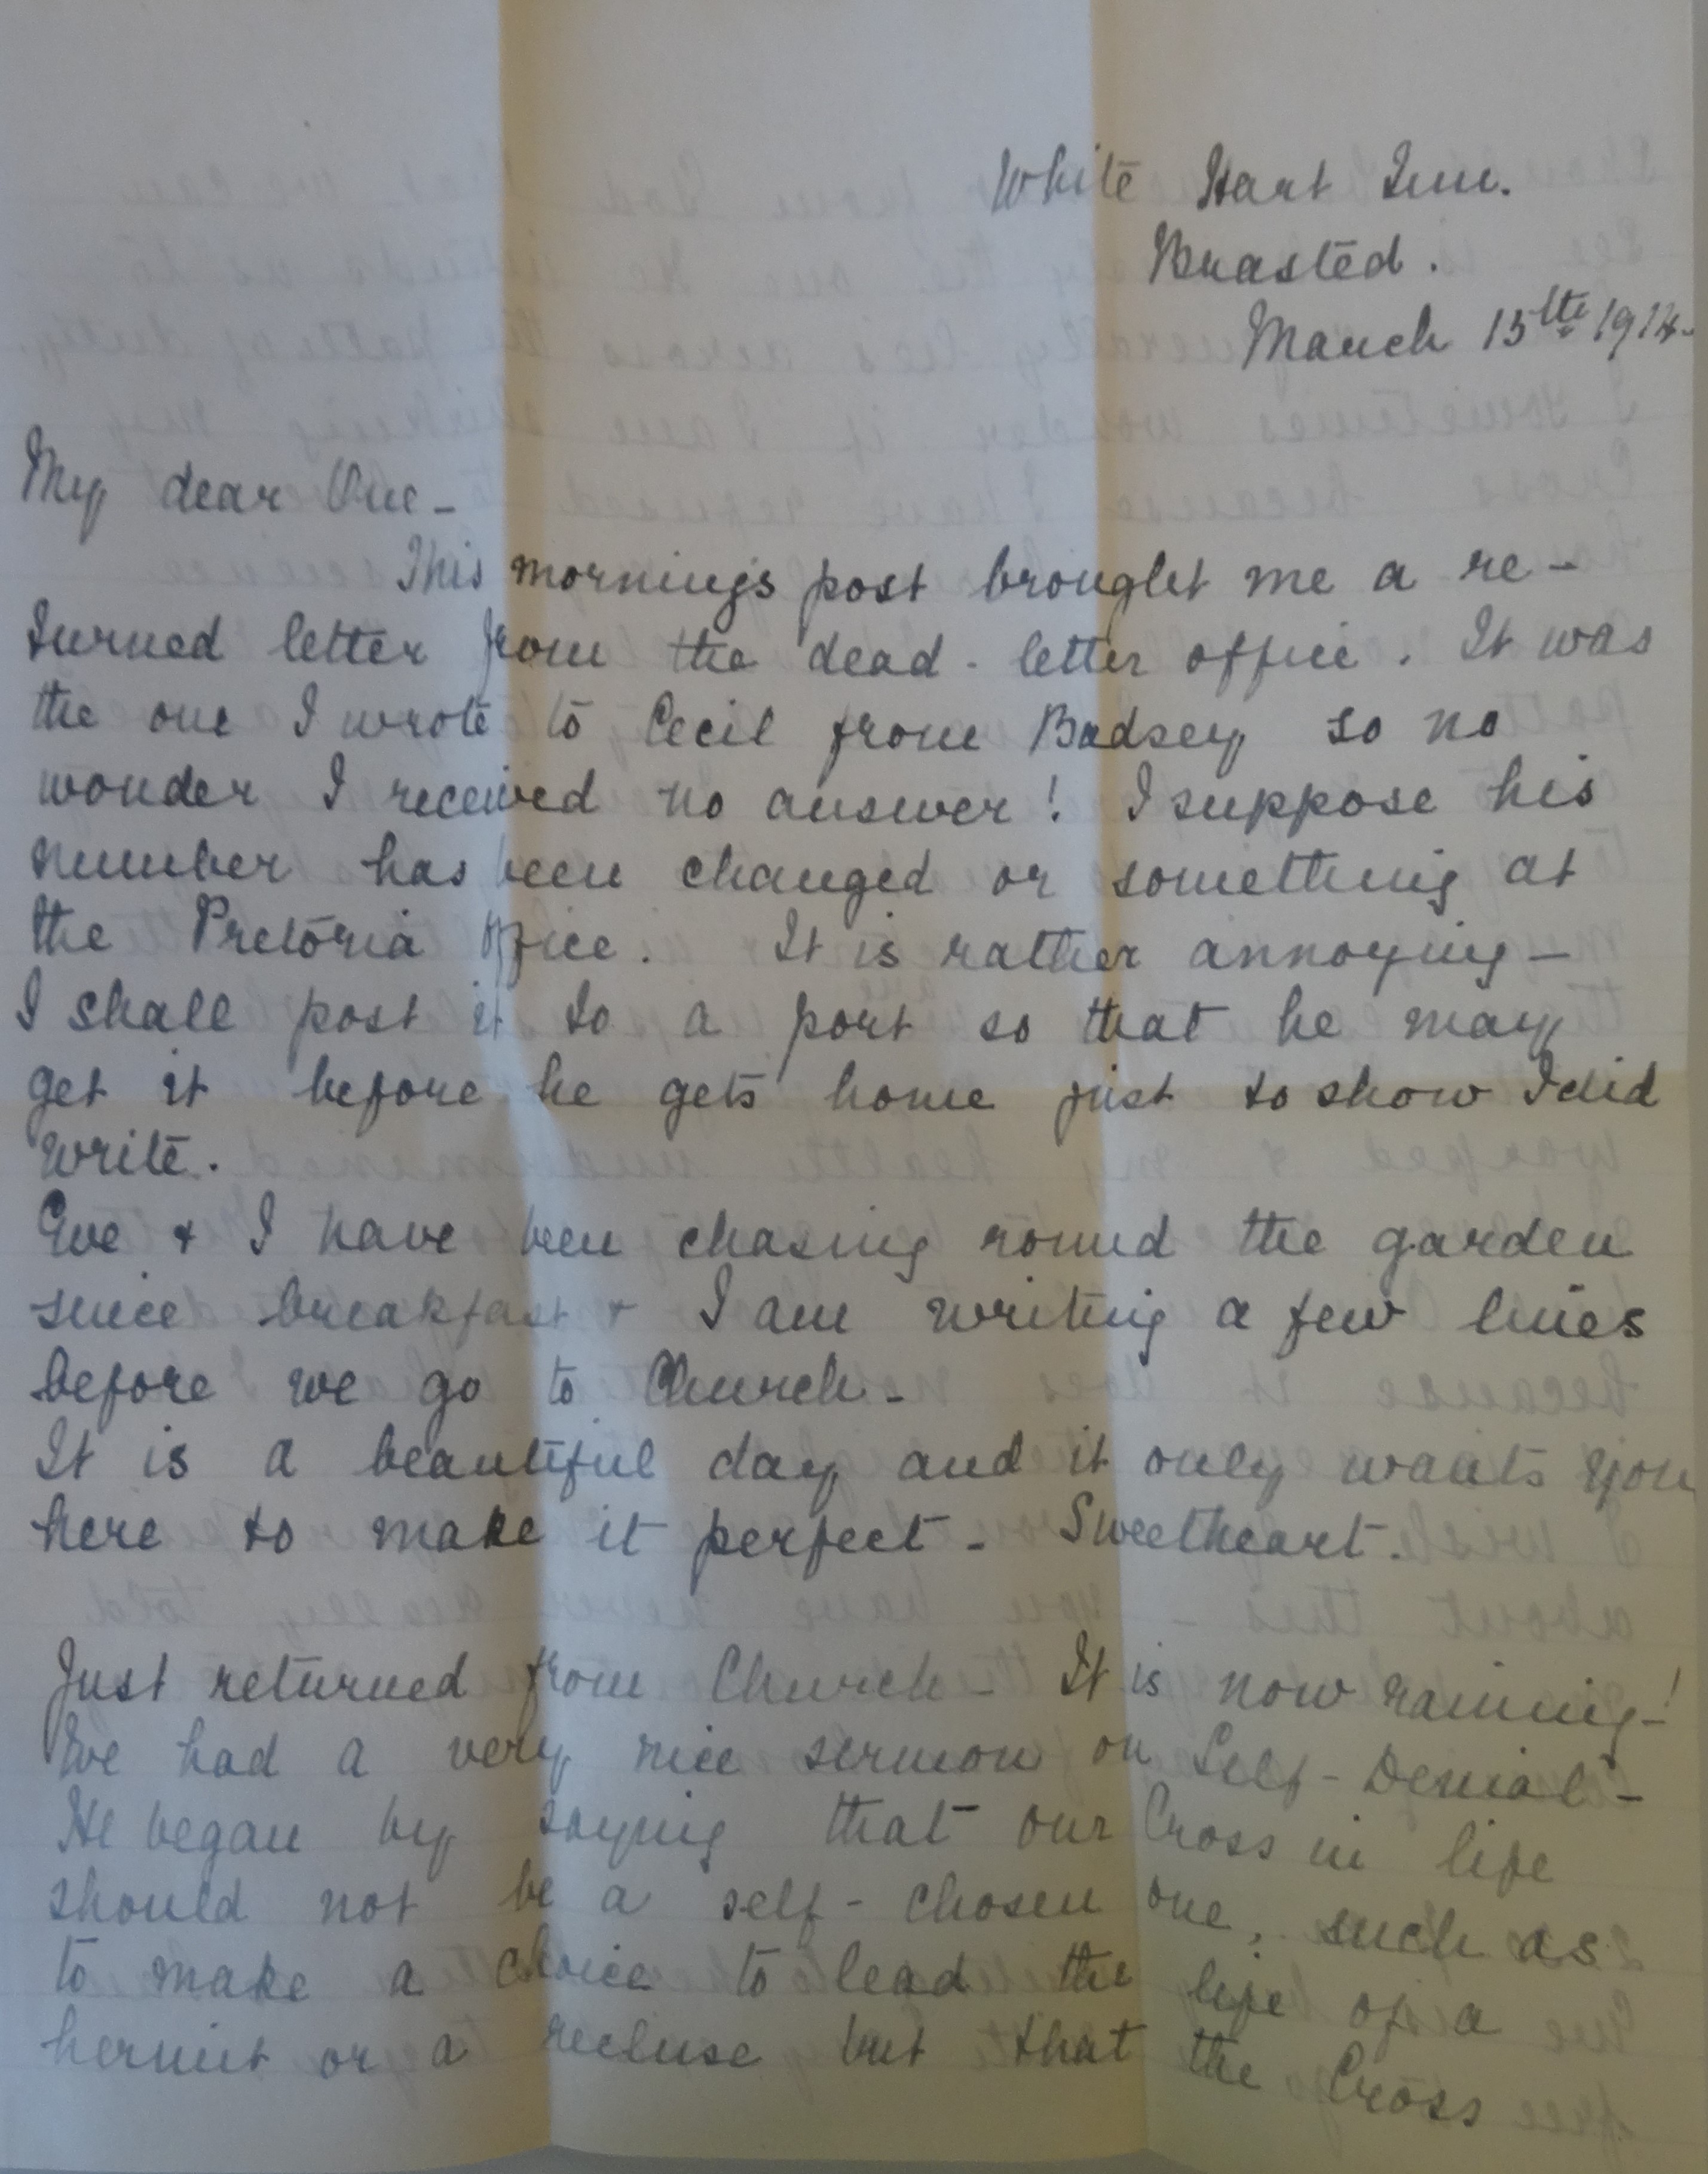 White Hart Inn.
Brasted.
March 15th 1914.
My dear One -
This mornings post brought me a re-
turned letter from the dead-letter office. It was
the one I wrote to Cecil from Badsey so no
wonder I received no answer! I suppose his
number has been changed or something at
the Pretoria Office. It is rather annoying -
I shall post it to a port so that he may
get it before he gets home just to show I did
write.
Eve & I have been chasing round the garden
since breakfast & I am writing a few lines
before we go to Church -
It is a beautiful day and it only wants you
here to make it perfect - Sweetheart.
Just returned from Church - It is now raining -!
We had a very nice sermon on Self-Denial -
He began by saying that our Cross in life
should not be a self-chosen one, such as
to make a choice to lead the life of a
hermit or a recluse but that the Cross